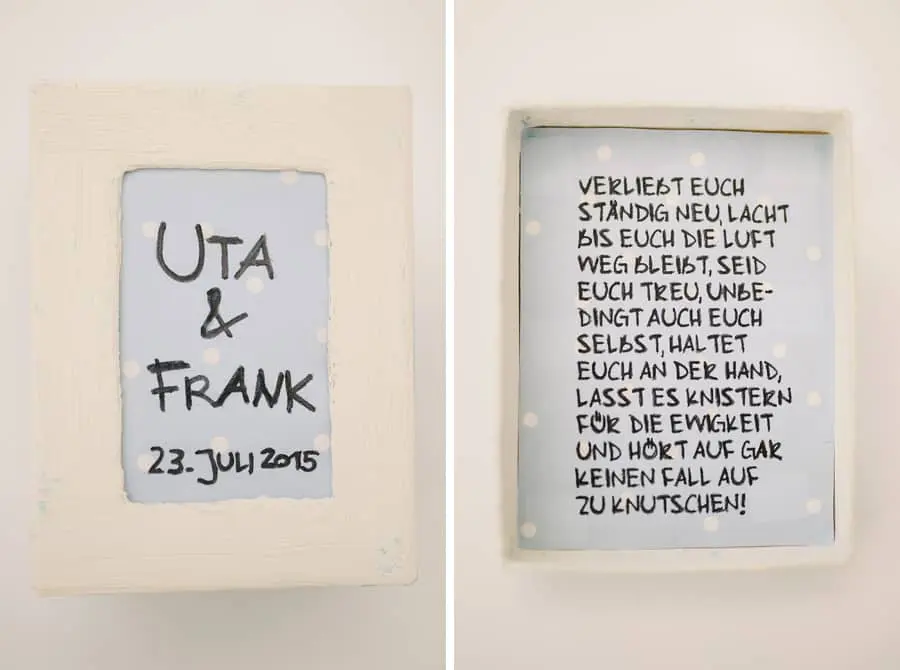 UTA
&
FRANK
23. JULI 2015
VERLIEBT EUCH
STÄNDIG NEU, LACHT
BIS EUCH DIE LUFT
WEG BLEIBT, SEID
EUCH TREU, UNBE-
DINGT AUCH EUCH
SELBST, HALTET
EUCH AN DER HAND,
LASST ES KNISTERN
FÜR DIE EWIGKEIT
UND HÖRT AUF GAR
KEINEN FALL AUF
ZU KNUTSCHEN!